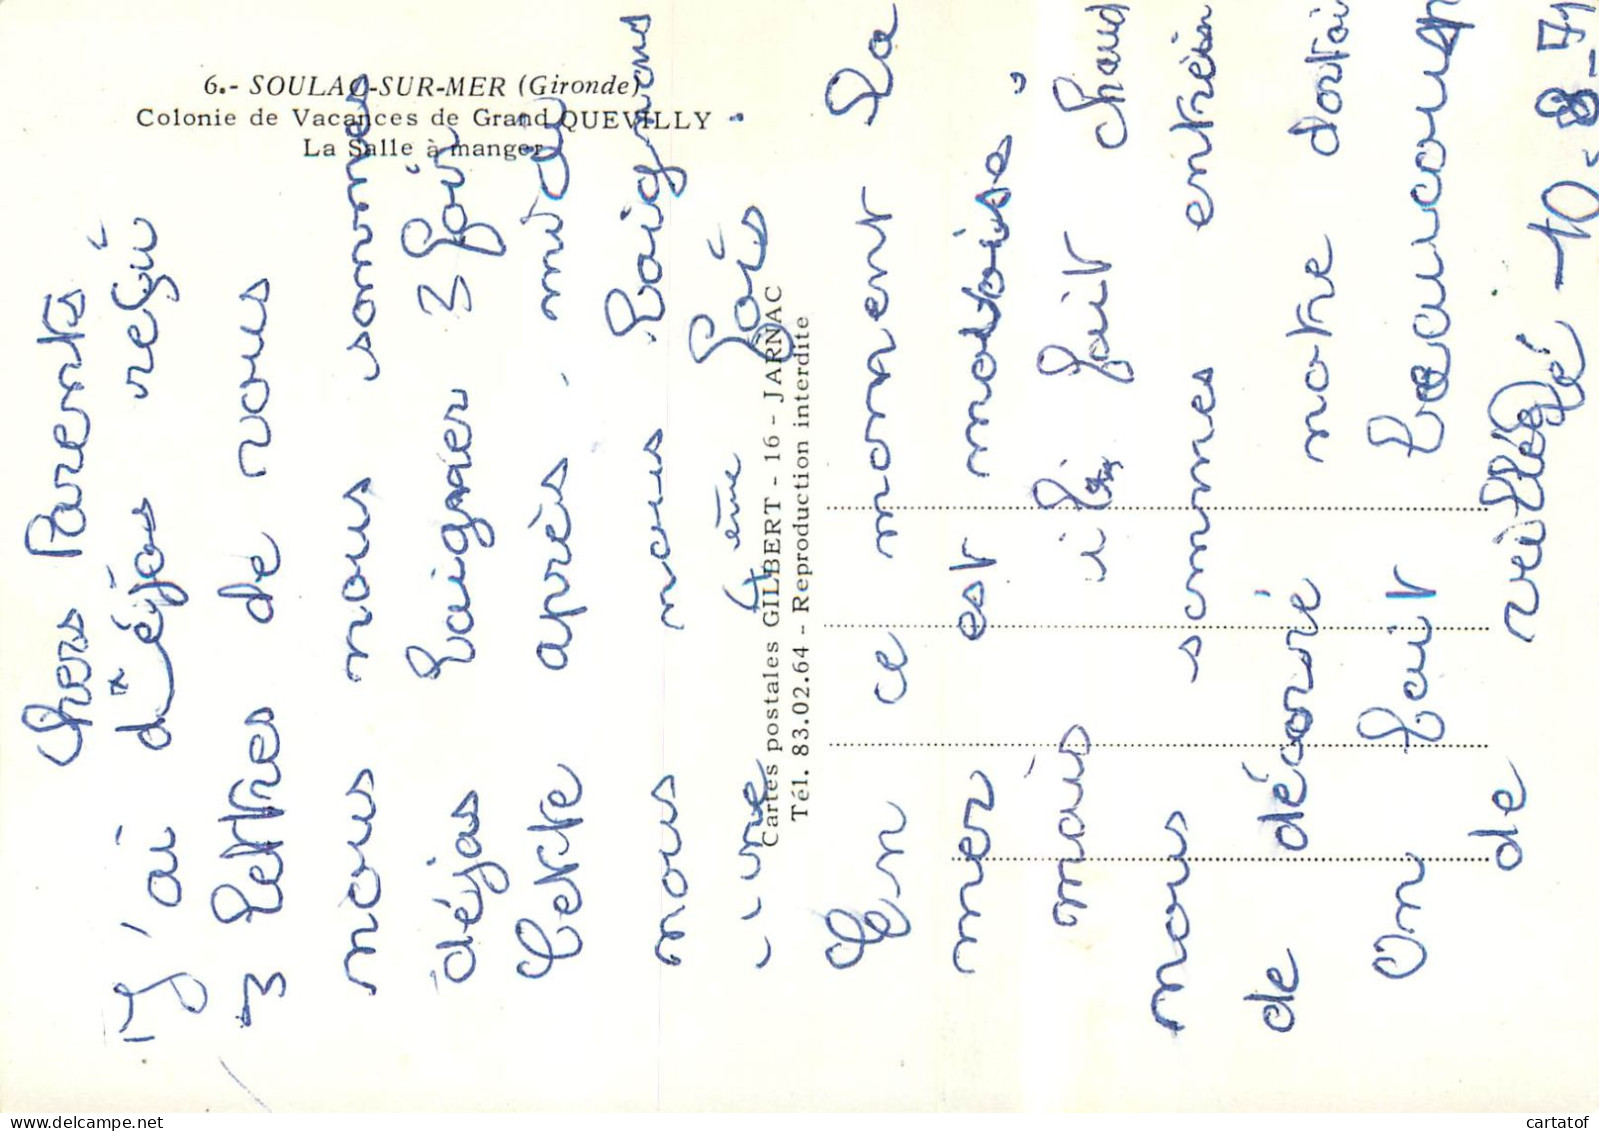 6.- SOULAC-SUR-MER (Gironde)
Colonie de Vacances de Grand QUEVILLY
La Salle à manger
Cartes postales GILBERT - 16 - JARNAC
Tél. 83.02.64 - Reproduction interdite
Chers Parents
J'ai déjas reçu
3 lettres de vous
nous nous sommes
déjas baigner 3 foir
cette après. midi
nous nous baignons
une 4 ème fois
En ce moment la
mer est mötoise.
mais il fait chaud
nous sommes entrein
de décoré notre dortoi
On fait beaucoup
de veillée
10-8-71